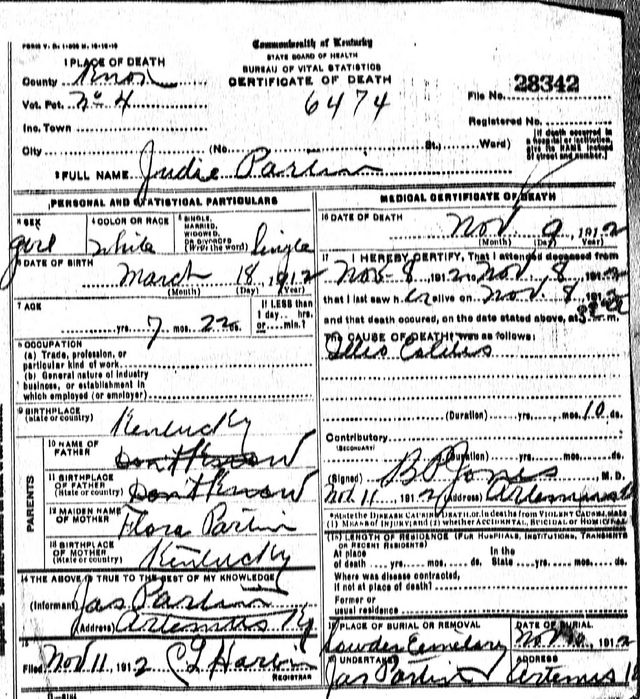 FORM V. S. 1-
Commonwealth of Kentucky
STATE BOARD OF HEALTH
BUREAU OF VITAL STATISTICS
CERTIFICATE OF DEATH
1 PLACE OF DEATH
County Knox
Vot. Pct. No 4
Inc. Town
City (No. St., Ward)
File No. 28342
6474
Registered No.
[If death occurred in a hospital or institution, give its NAME instead of street and number.]
2 FULL NAME Judie Parlin
PERSONAL AND STATISTICAL PARTICULARS
3 SEX girl
4 COLOR OR RACE white
5 SINGLE, MARRIED, WIDOWED OR DIVORCED (Write the word) Single
6 DATE OF BIRTH
March 18 1912
(Month) (Day) (Year)
7 AGE
yrs. 7 mos. 22 ds.
If LESS than 1 day hrs. or min.?
8 OCCUPATION
(a) Trade, profession, or particular kind of work
(b) General nature of industry business, or establishment in which employed (or employer)
9 BIRTHPLACE (State or country) Kentucky
PARENTS
10 NAME OF FATHER Dont Know
11 BIRTHPLACE OF FATHER (State or country) Dont Know
12 MAIDEN NAME OF MOTHER Flora Parlin
13 BIRTHPLACE OF MOTHER (State or country) Kentucky
14 THE ABOVE IS TRUE TO THE BEST OF MY KNOWLEDGE
(Informant) Jas Parlin
(Address) Artemus Ky
15
Filed Nov 11 1912
REGISTRAR
MEDICAL CERTIFICATE OF DEATH
16 DATE OF DEATH
Nov 9 1912
(Month) (Day) (Year)
17 I HEREBY CERTIFY, That I attended deceased from
Nov 8 1912 to Nov. 8 1912
that I last saw her alive on Nov. 8 1912
and that death occured, on the date stated above, at m.
The CAUSE OF DEATH was as follows:
Illio Colitis
(Duration) yrs. mos. 10 ds.
Contributory
(SECONDARY)
(Duration) yrs. mos. ds.
(Signed) B P Jones M. D.
Nov. 11 1912 (Address) Artemus
*State the DISEASE CAUSING DEATH, or, in deaths from VIOLENT CAUSES, state (1) MEANS OF INJURY; and (2) whether ACCIDENTAL, SUICIDAL or HOMICIDAL
18 LENGTH OF RESIDENCE (FOR HOSPITALS, INSTITUTIONS, TRANSIENTS OR RECENT RESIDENTS)
At place of death yrs. mos. ds. In the State yrs. mos. ds.
Where was disease contracted, if not at place of death?
Former or usual residence
19 PLACE OF BURIAL OR REMOVAL
Cemetery
DATE OF BURIAL
Nov 1912
20 UNDERTAKER
Jas Parlin
ADDRESS
Artemus